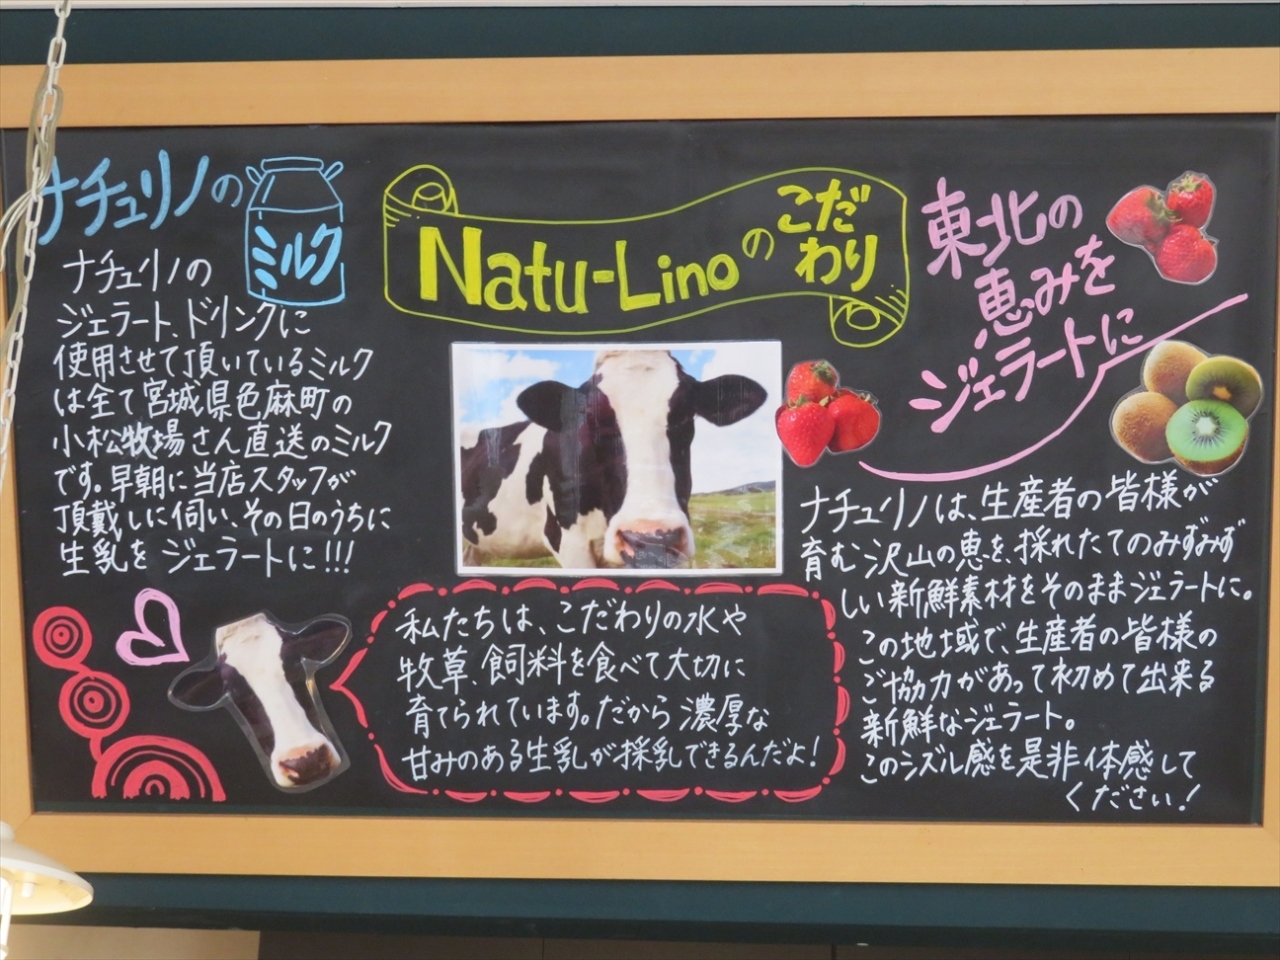 ナチュリノの
ミルク
ナチュリノの
ジェラート、ドリンクに
使用させて頂いているミルク
は全て宮城県色麻町の
小松牧場さん直送のミルク
です。早朝に当店スタッフが
頂戴しに伺い、その日のうちに
生乳をジェラートに!!!
Natu-Linoの
こだ
わり
私たちは、こだわりの水や
牧草、飼料を食べて大切に
育てられています。だから濃厚な
甘みのある生乳が採乳できるんだよ!
東北の
恵みを
ジェラートに
ナチュリノは、生産者の皆様が
育む沢山の恵を、採れたてのみずみず
しい新鮮素材をそのままジェラートに。
この地域で、生産者の皆様の
ご協力があって初めて出来る
新鮮なジェラート。
このシズル感を是非体感して
ください!